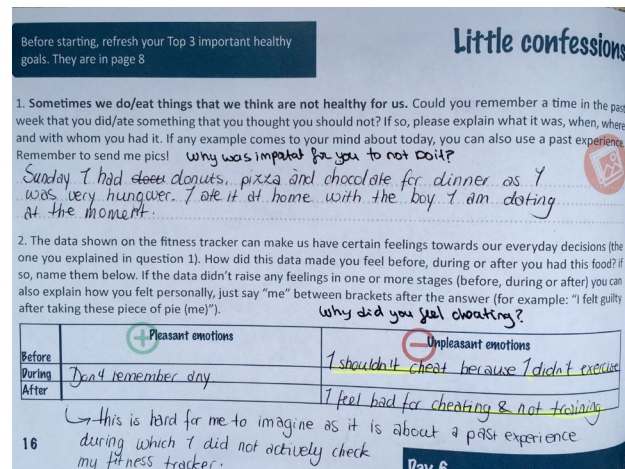 Before starting, refresh your Top 3 important healthy
goals. They are in page 8
Little confessions
1. Sometimes we do/eat things that we think are not healthy for us. Could you remember a time in the past
week that you did/ate something that you thought you should not? If so, please explain what it was, when, where
and with whom you had it. If any example comes to your mind about today, you can also use a past experience.
Remember to send me pics! Why was impatat for you to not Doit?
Sunday I had donuts, pizza and chocolate for dinner as I
was very hungover. I ate it at home with the boy I am dating
at the moment.
2. The data shown on the fitness tracker can make us have certain feelings towards our everyday decisions (the
one you explained in question 1). How did this data made you feel before, during or after you had this food? if
so, name them below. If the data didn't raise any feelings in one or more stages (before, during or after) you can
also explain how you felt personally, just say "me" between brackets after the answer (for example: "I felt guilty
after taking these piece of pie (me)"). Why did you feel cheating?
Pleasant emotions
Unpleasant emotions
Before
I shouldn't cheat because I didn't exercise
During
Don't remember any
After
I feel bad for cheating & not training
this is hard for me to imagine as it is about a past experience
during which I did not actively check
my fitness tracker.
16
Day 6